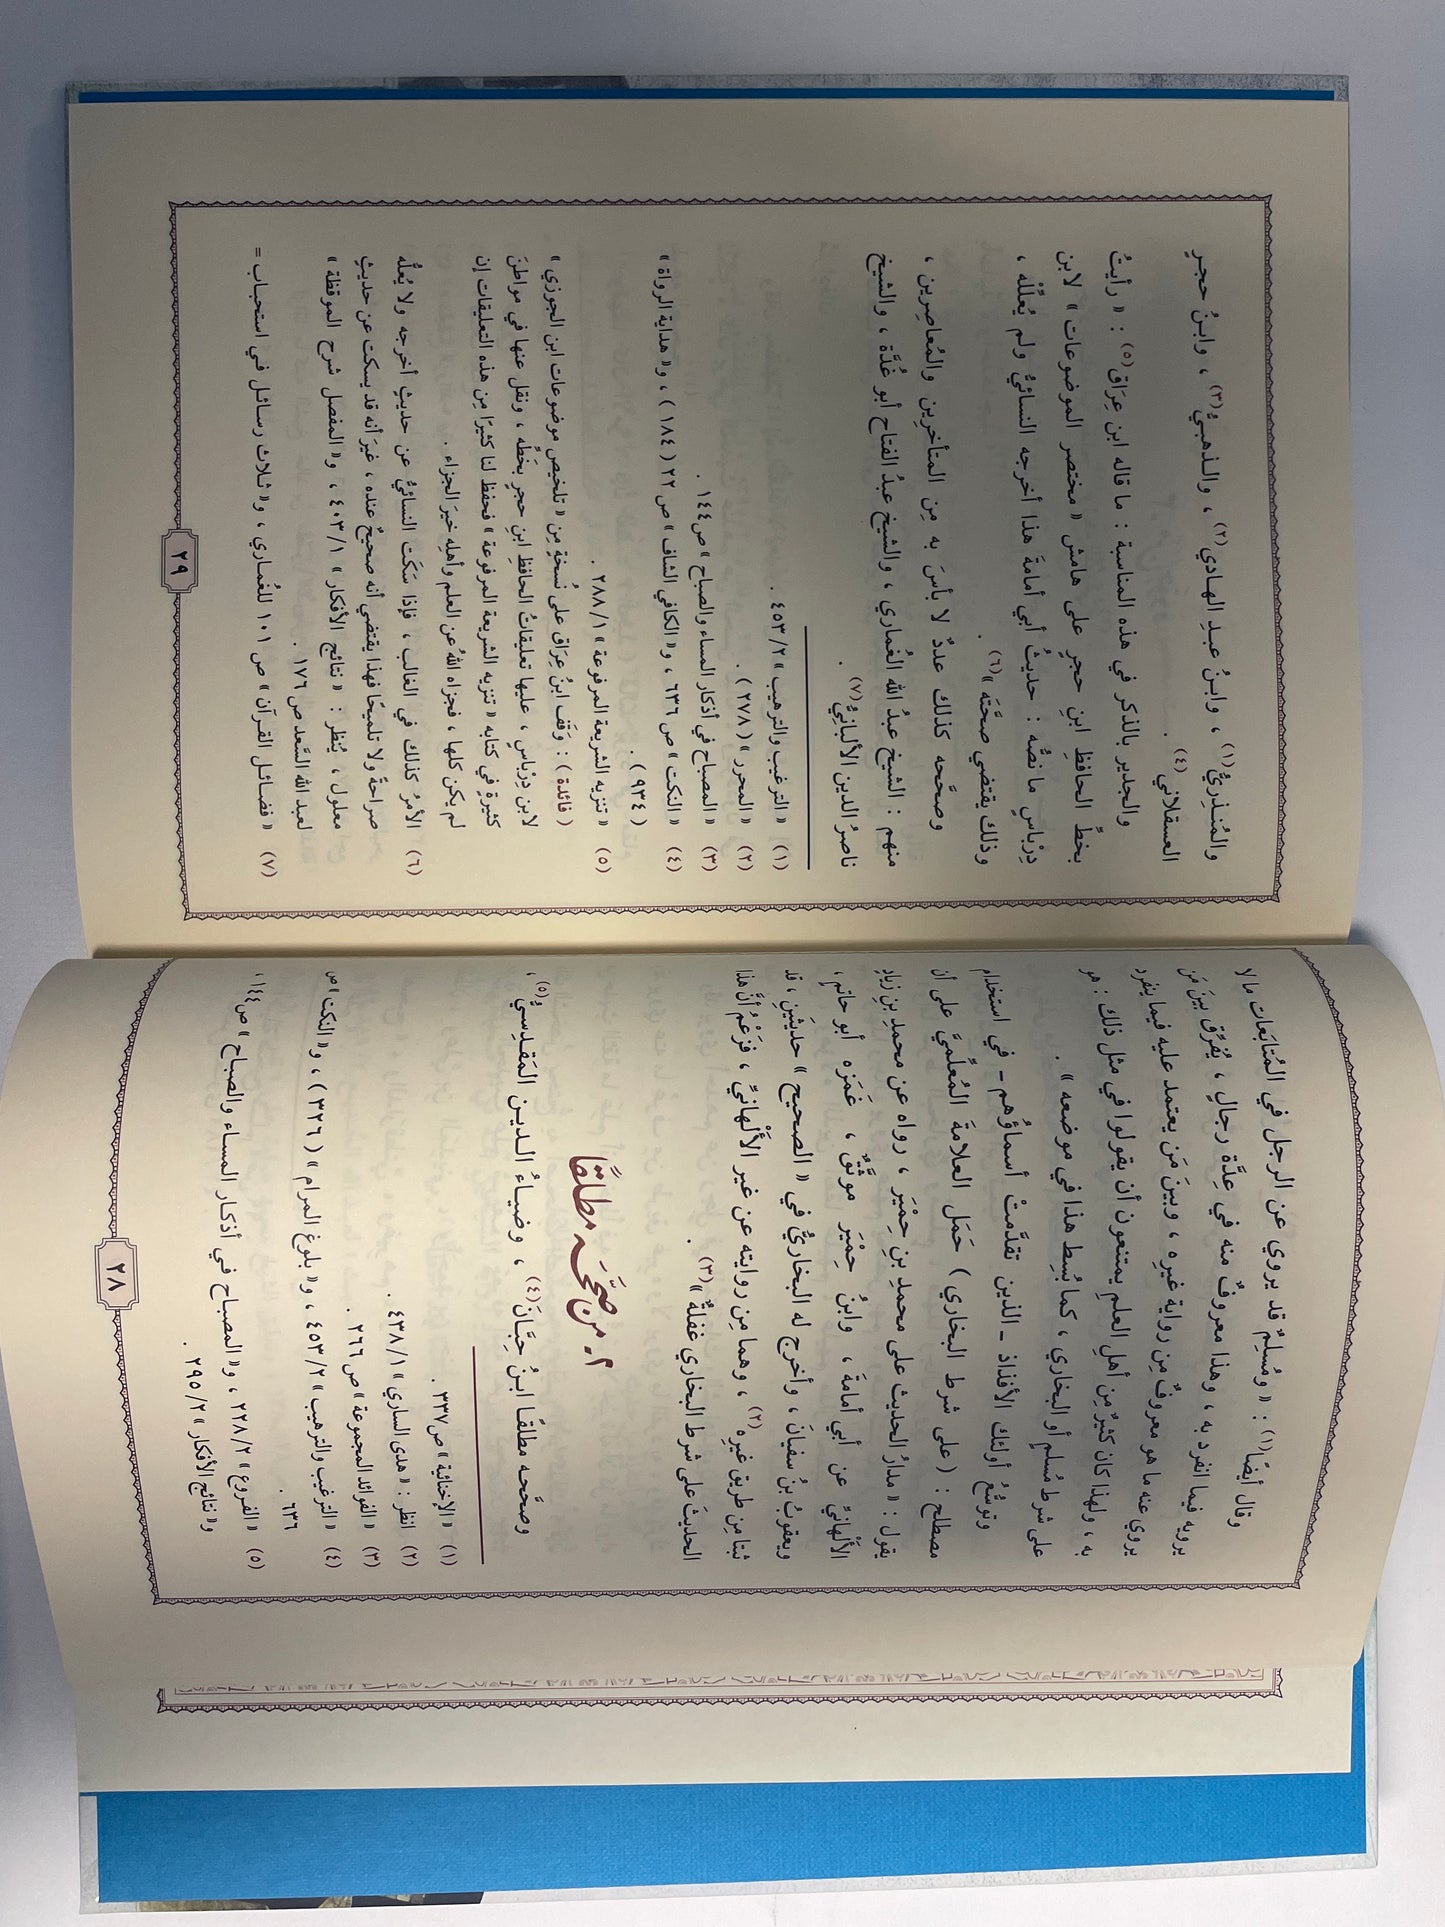 وقال أيضًا(١) : « ومُسلِمٌ قد يروي عن الرجل في المُتابَعات ما لا
يرويه فيما انفرد به ، وهذا معروفٌ منه في عِدَّة رجالٍ ، يُفرَّق بينَ مَن
يروي عنه ما هو معروفٌ مِن رواية غيرِه ، وبينَ مَن يعتمد عليه فيما ينفرد
به ، ولهذا كان كثيرٌ مِن أهلِ العلمِ يمتنعون أن يقولوا في مثل ذلك : هو
على شرط مُسلم أو البخاري ، كما بُسِط هذا في موضعه » .
وتوسُّعُ أولئك الأفذاذ ـ الذين تقدَّمتْ أسماؤهم ـ في استخدام
مصطلح : ( على شرط البخاري ) حَمَل العلامةَ المُعلِّميَّ على أن
يقول : « مدارُ الحديث على محمدِ بنِ حِمْيَر ، رواه عن محمدِ بنِ زيادٍ
الأَلْهانيِّ عن أبي أمامةَ ، وابنُ حِمْيَر موثَّقٌ ، غَمَزه أبو حاتمٍ ،
ويعقوبُ بنُ سفيانَ ، وأخرج له البخاريُّ في « الصحيح » حديثَينِ ، قد
ثبتا مِن طريق غيرِه(٢) ، وهما مِن روايته عن غير الأَلْهانيِّ ، فزَعْمُ أنَّ هذا
الحديثَ على شرط البخاري غفلةٌ »(٣) .
٢- من صحَّحَه مطلقًا
وصحَّحه مطلقًا ابنُ حِبَّانَ(٤) ، وضياءُ الدين المَقدِسيُّ(٥) ،
(١) « الإخنائية » ص٣٣٧ .
(٢) انظر : « هدى الساري » ٤٣٨/١ .
(٣) « الفوائد المجموعة » ص ٢٦٦ .
(٤) « الترغيب والترهيب » ٤٥٣/٢ ، و« بلوغ المرام » ( ٣٢٦ ) ، و« النكت » ص
٦٣٦ .
(٥) « الفروع » ٢٢٨/٢ ، و« المصباح في أذكار المساء والصباح » ص١٤٤ ،
و« نتائج الأفكار » ٢٩٥/٢ .
٢٨
والمُنذِريُّ(١) ، وابنُ عبدِ الهادي(٢) ، والذهبيُّ(٣) ، وابنُ حجرٍ
العسقلاني(٤) .
والجدير بالذكر في هذه المناسبة : ما قاله ابن عِرَاق(٥) : « رأيتُ
بخطِّ الحافظِ ابنِ حجرٍ على هامش « مختصر الموضوعات » لابن
دِرْباسٍ ما نصُّه : حديثُ أبي أمامةَ هذا أخرجه النسائيُّ ولم يُعلِّلْه ،
وذلك يقتضي صحَّتَه »(٦) .
وصحَّحه كذلك عددٌ لا بأسَ به مِن المتأخرين والمُعاصِرين ،
منهم : الشيخ عبدُ الله الغُماري ، والشيخ عبدُ الفتاح أبو غُدَّة ، والشيخ
ناصرُ الدين الألبانيُّ(٧) .
(١) « الترغيب والترهيب » ٤٥٣/٢ .
(٢) « المحرر » ( ٢٧٨ ) .
(٣) « المصباح في أذكار المساء والصباح » ص١٤٤ .
(٤) « النكت » ص ٦٣٦ ، و« الكافي الشاف » ص ٢٢ ( ١٨٤ ) ، و« هداية الرواة »
( ٩٣٤ ) .
(٥) « تنزيه الشريعة المرفوعة » ٢٨٨/١ .
( فائدة ) : وَقَف ابنُ عِرَاق على نُسخةٍ مِن « تلخيص موضوعات ابن الجوزي »
لابن دِرْباسٍ ، عليها تعليقاتُ الحافظِ ابنِ حجرٍ بخَطِّه ، ونقل عنها في مواطنَ
كثيرةٍ في كتابه « تنزيه الشريعة المرفوعة » فحفظ لنا كثيرًا مِن هذه التعليقات إن
لم يكن كلها ، فجزاه اللهُ عن العلم وأهلِه خيرَ الجزاء .
(٦) الأمرُ كذلك في الغالب ، فإذا سَكَت النسائيُّ عن حديثٍ أخرجه ولا يُعلُّه
صراحةً ولا تلميحًا فهذا يقتضي أنه صحيحٌ عنده ، غيرَ أنه قد يسكت عن حديثٍ
معلول ، يُنظر : « نتائج الأفكار » ٤٠٣/١ ، و« المفصل شرح الموقظة »
لعبد الله السَّعد ص ١٧٦ .
(٧) « فضائل القرآن » ص ١٠١ للغُماري ، و« ثلاث رسائل في استحباب =
٢٩